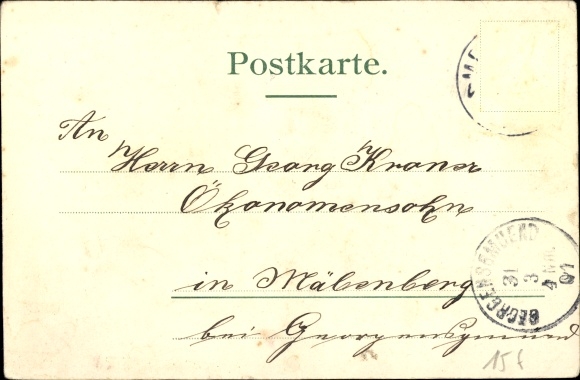 Postkarte.
An
Herrn Georg Kraner
Ökonomensohn
in Mäbenberg
bei Georgensgmünd
GEORGENSGMUEND
31
3
4 NM.
01
15 f